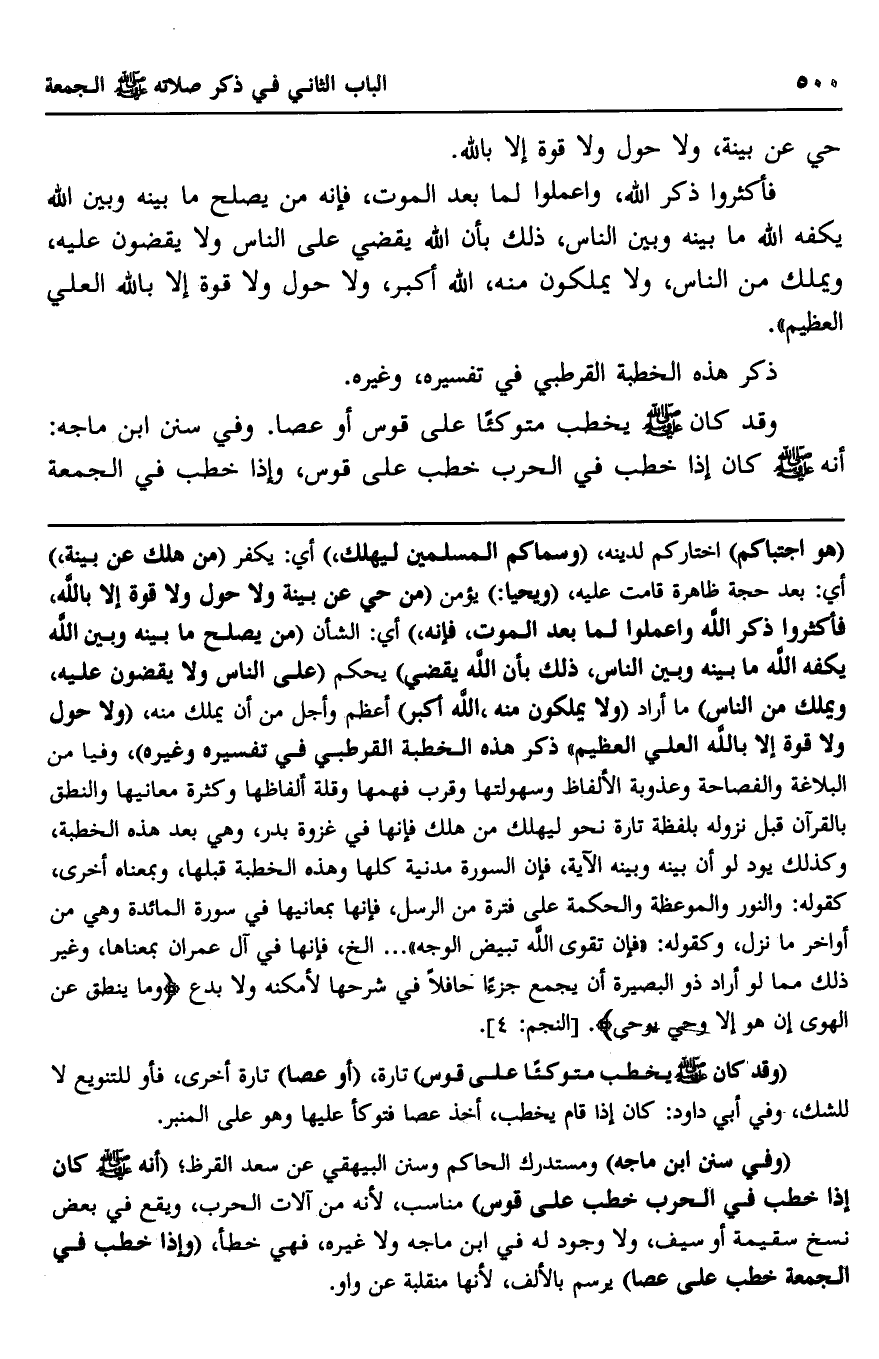 ٥٠٠ الباب الثاني في ذكر صلاته ﷺ الجمعة
حي عن بينة، ولا حول ولا قوة إلا بالله.
فأكثروا ذكر الله، واعملوا لما بعد الموت، فإنه من يصلح ما بينه وبين الله
يكفه الله ما بينه وبين الناس، ذلك بأن الله يقضي على الناس ولا يقضون عليه،
ويملك من الناس، ولا يملكون منه، الله أكبر، ولا حول ولا قوة إلا بالله العلي
العظيم».
ذكر هذه الخطبة القرطبي في تفسيره، وغيره.
وقد كان ﷺ يخطب متوكئًا على قوس أو عصا. وفي سنن ابن ماجه:
أنه ﷺ كان إذا خطب في الحرب خطب على قوس، وإذا خطب في الجمعة
(هو اجتباكم) اختاركم لدينه، (وسماكم المسلمين ليهلك،) أي: يكفر (من هلك عن بينة،)
أي: بعد حجة ظاهرة قامت عليه، (ويحيا:) يؤمن (من حي عن بينة ولا حول ولا قوة إلا باللَّه،
فأكثروا ذكر اللَّه واعملوا لما بعد الموت، فإنه،) أي: الشأن (من يصلح ما بينه وبين اللَّه
يكفه اللَّه ما بينه وبين الناس، ذلك بأن اللَّه يقضي) يحكم (على الناس ولا يقضون عليه،
ويملك من الناس) ما أراد (ولا يملكون منه ،اللَّه أكبر) أعظم وأجل من أن يملك منه، (ولا حول
ولا قوة إلا باللَّه العلي العظيم» ذكر هذه الخطبة القرطبي في تفسيره وغيره)، وفيا من
البلاغة والفصاحة وعذوبة الألفاظ وسهولتها وقرب فهمها وقلة ألفاظها وكثرة معانيها والنطق
بالقرآن قبل نزوله بلفظة تارة نحو ليهلك من هلك فإنها في غزوة بدر، وهي بعد هذه الخطبة،
وكذلك يود لو أن بينه وبينه الآية، فإن السورة مدنية كلها وهذه الخطبة قبلها، وبمعناه أخرى،
كقوله: والنور والموعظة والحكمة على فترة من الرسل، فإنها بمعانيها في سورة المائدة وهي من
أواخر ما نزل، وكقوله: «فإن تقوى اللَّه تبيض الوجه»... الخ، فإنها في آل عمران بمعناها، وغير
ذلك مما لو أراد ذو البصيرة أن يجمع جزءًا حافلاً في شرحها لأمكنه ولا بدع ﴿وما ينطق عن
الهوى إن هو إلا وحي يوحى﴾. [النجم: ٤].
(وقد كان ﷺ يخطب متوكئًا على قوس) تارة، (أو عصا) تارة أخرى، فأو للتنويع لا
للشك، وفي أبي داود: كان إذا قام يخطب، أخذ عصا فتوكأ عليها وهو على المنبر.
(وفي سنن ابن ماجه) ومستدرك الحاكم وسنن البيهقي عن سعد القرظ؛ (أنه ﷺ كان
إذا خطب في الحرب خطب على قوس) مناسب، لأنه من آلات الحرب، ويقع في بعض
نسخ سقيمة أو سيف، ولا وجود له في ابن ماجه ولا غيره، فهي خطأ، (وإذا خطب في
الجمعة خطب على عصا) يرسم بالألف، لأنها منقلبة عن واو.